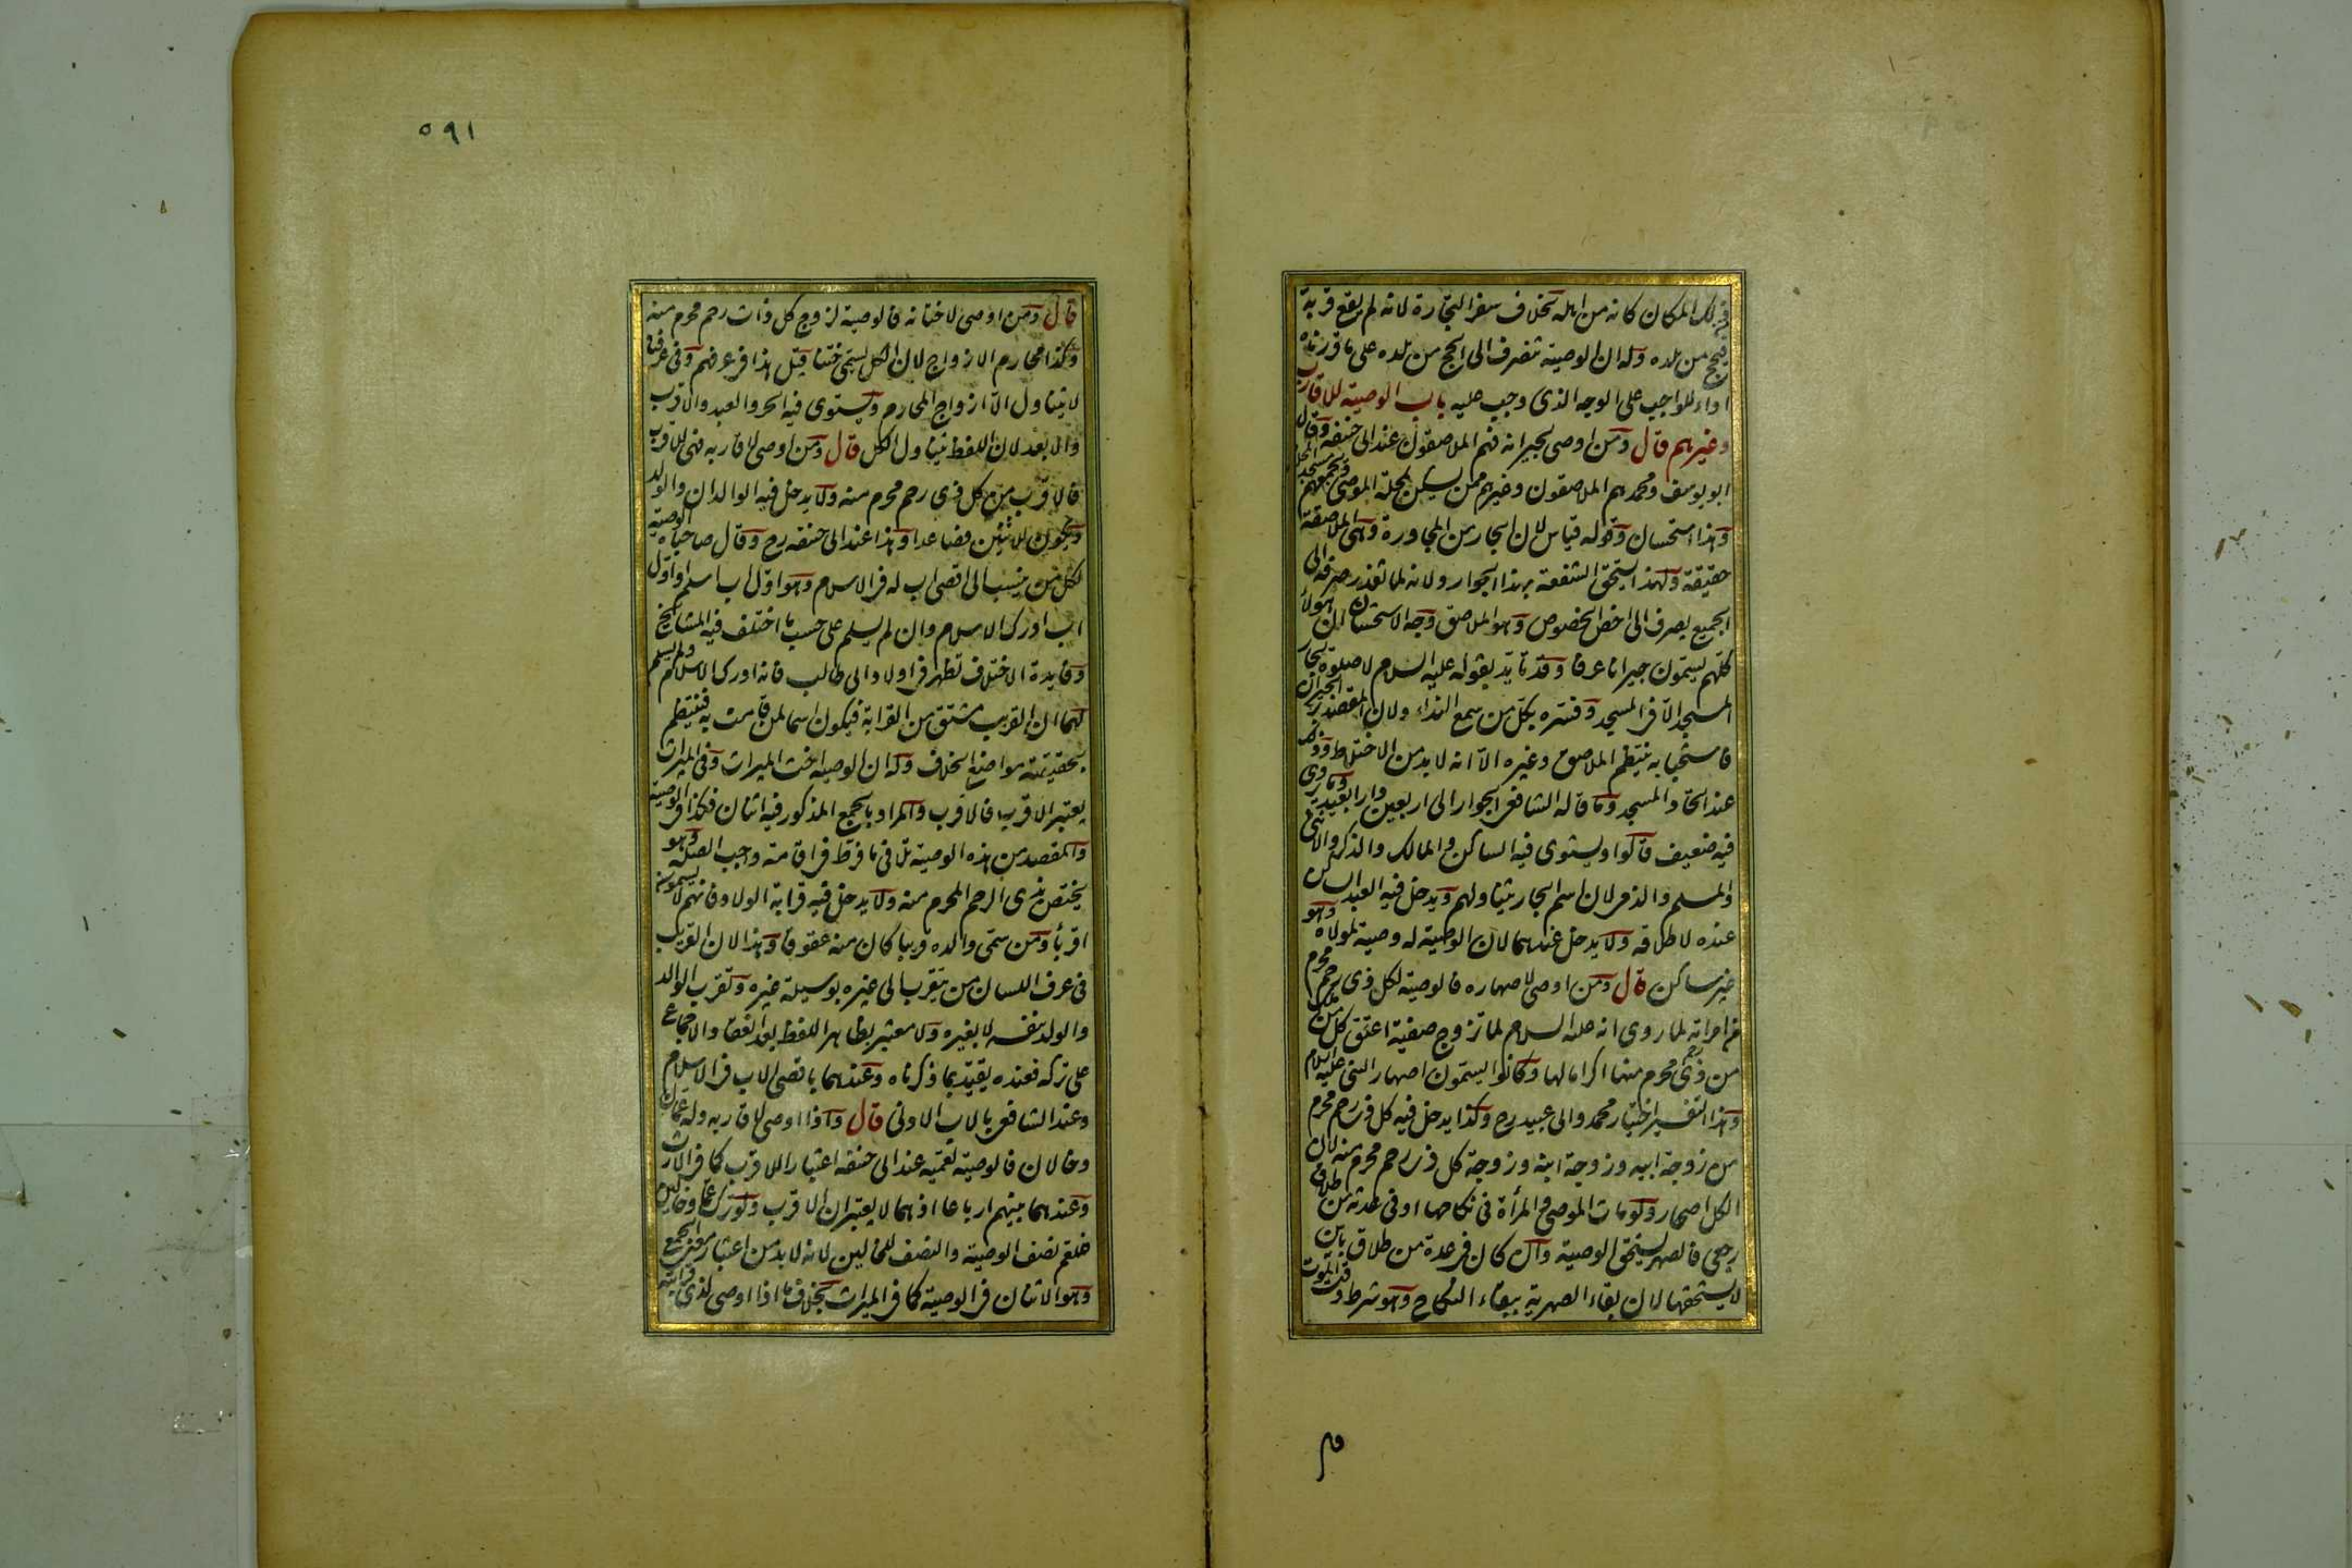 فى ذلك المكان كانه من اهله بخلاف سفر التجارة لانه لم يقع قربة
فيحج من بلده وله ان الوصية تنصرف الى الحج من بلده على ما قررناه
اداء للواجب على الوجه الذى وجب عليه باب الوصية للاقارب
وغيرهم قال ومن اوصى لجيرانه فهم الملاصقون عند ابى حنيفة وقال
ابو يوسف ومحمد هم الملاصقون وغيرهم ممن يسكن محلة الموصى ويجمعهم مسجد المحلة
وهذا استحسان وقوله قياس لان الجار من المجاورة وهى الملاصقة
حقيقة ولهذا يستحق الشفعة بهذا الجوار ولانه لما تعذر صرفه الى
الجميع يصرف الى اخص الخصوص وهو الملاصق وجه الاستحسان ان هولاء
كلهم يسمون جيرانا عرفا وقد تايد بقوله عليه السلام لا صلوة لجار
المسجد الا فى المسجد وفسره بكل من سمع النداء ولان المقصد بر الجيران
فاستحبابه ينتظم الملاصق وغيره الا انه لا بد من الاختلاط وذلك
عند اتحاد المسجد وما قاله الشافعى الجوار الى اربعين دارا بعيد وما روى
فيه ضعيف قالوا ويستوى فيه الساكن والمالك والذكر والانثى
والمسلم والذمى لان اسم الجار يتناولهم ويدخل فيه العبد الساكن
عنده لاطلاقه ولا يدخل عندهما لان الوصية له وصية لمولاه وهو
غير ساكن قال ومن اوصى لاصهاره فالوصية لكل ذى رحم محرم
من امراته لما روى انه عليه السلام لما تزوج صفية اعتق كل من ملك
من ذى رحم محرم منها اكراما لها وكانوا يسمون اصهار النبى عليه السلام
وهذا التفسير اختيار محمد وابى عبيد رح وكذا يدخل فيه كل ذى رحم محرم
من زوجة ابيه وزوجة ابنه وزوجة كل ذى رحم محرم منه لان
الكل اصهار ولو مات الموصى والمرأة فى نكاحها او فى عدته من طلاق
رجعى فالصهر يستحق الوصية وان كان فى عدة من طلاق باين
لا يستحقها لان بقاء الصهرية ببقاء النكاح وهو شرط وقت الموت
٥٩١
قال ومن اوصى لاختانه فالوصية لزوج كل ذات رحم محرم منه
وكذا محارم الازواج لان الكل يسمى ختنا قيل هذا فى عرفهم وفى عرفنا
لا يتناول الا ازواج المحارم ويستوى فيه الحر والعبد والاقرب
والابعد لان اللفظ يتناول الكل قال ومن اوصى لاقاربه فهى للاقرب
فالاقرب من كل ذى رحم محرم منه ولا يدخل فيه الوالدان والولد
ويكون للاثنين فصاعدا وهذا عند ابى حنيفه رح وقال صاحباه الوصية
لكل من ينسب الى اقصى اب له فى الاسلام وهو اول اب اسلم او اول
اب ادرك الاسلام وان لم يسلم على حسب ما اختلف فيه المشايخ
وفايدة الاختلاف تظهر فى اولاد ابى طالب فانه ادرك الاسلام ولم يسلم
لهما ان القريب مشتق من القرابة فيكون اسما لمن قامت به فينتظم
بحقيقته مواضع الخلاف وله ان الوصية اخت الميراث وفى الميراث
يعتبر الاقرب فالاقرب والمراد بالجمع المذكور فيه اثنان فكذا فى الوصية
والمقصد من هذه الوصية تلافى ما فرط فى اقامة واجب الصلة وهو
يختص بذى الرحم المحرم منه ولا يدخل فيه قرابة الولاد فانهم لا يسمون
اقرباء ومن سمى والده قريبا كان منه عقوقا وهذا لان القريب
فى عرف اللسان من يتقرب الى غيره بوسيلة غيره وتقرب الوالد
والولد بنفسه لا بغيره ولا معتبر بظاهر اللفظ بعد انعقاد الاجماع
على تركه فعنده يقيد بما ذكرناه وعندهما باقصى الاب فى الاسلام
وعند الشافعى بالاب الادنى قال واذا اوصى لاقاربه وله عمان
وخالان فالوصية لعميه عند ابى حنيفه اعتبارا للاقرب كما فى الارث
وعندهما بينهم ارباعا اذ هما لا يعتبران الاقرب ولو ترك عما وخالين
فللعم نصف الوصية والنصف للخالين لانه لا بد من اعتبار معنى الجمع
وهو الاثنان فى الوصية كما فى الميراث بخلاف ما اذا اوصى لذى قرابته